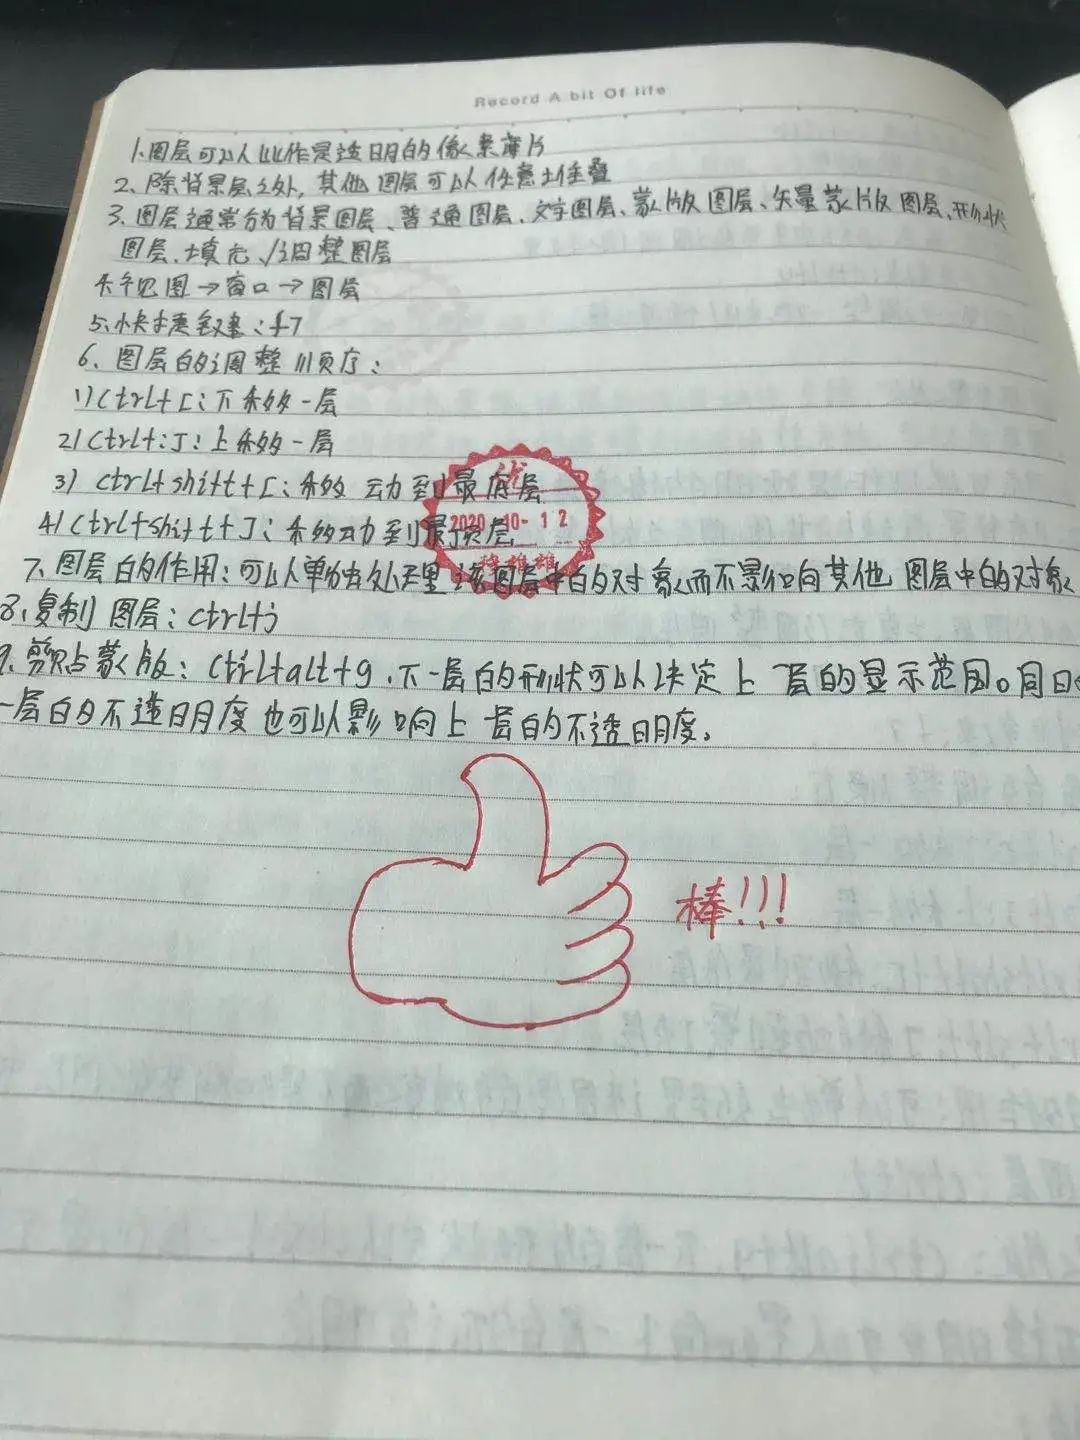 Record A bit Of life
1.图层可以比作是透明的像素薄片
2、除背景层之外,其他图层可以任意堆叠
3、图层通常分为背景图层、普通图层、文字图层、蒙版图层、矢量蒙版图层、形状
图层、填充/调整图层
4、视图→窗口→图层
5、快捷键:f7
6、图层的调整顺序:
1)Ctrl+[:下移一层
2)Ctrl+]:上移一层
3)ctrl+shift+[:移动到最底层
4)Ctrl+shift+]:移动到最顶层
优
2020-10-12
7、图层的作用:可以单独处理该图层中的对象而不影响其他图层中的对象
8、复制图层:ctrl+j
9、剪贴蒙版:Ctrl+alt+g,下一层的形状可以决定上一层的显示范围。同时
一层的不透明度也可以影响上一层的不透明度。
棒!!!